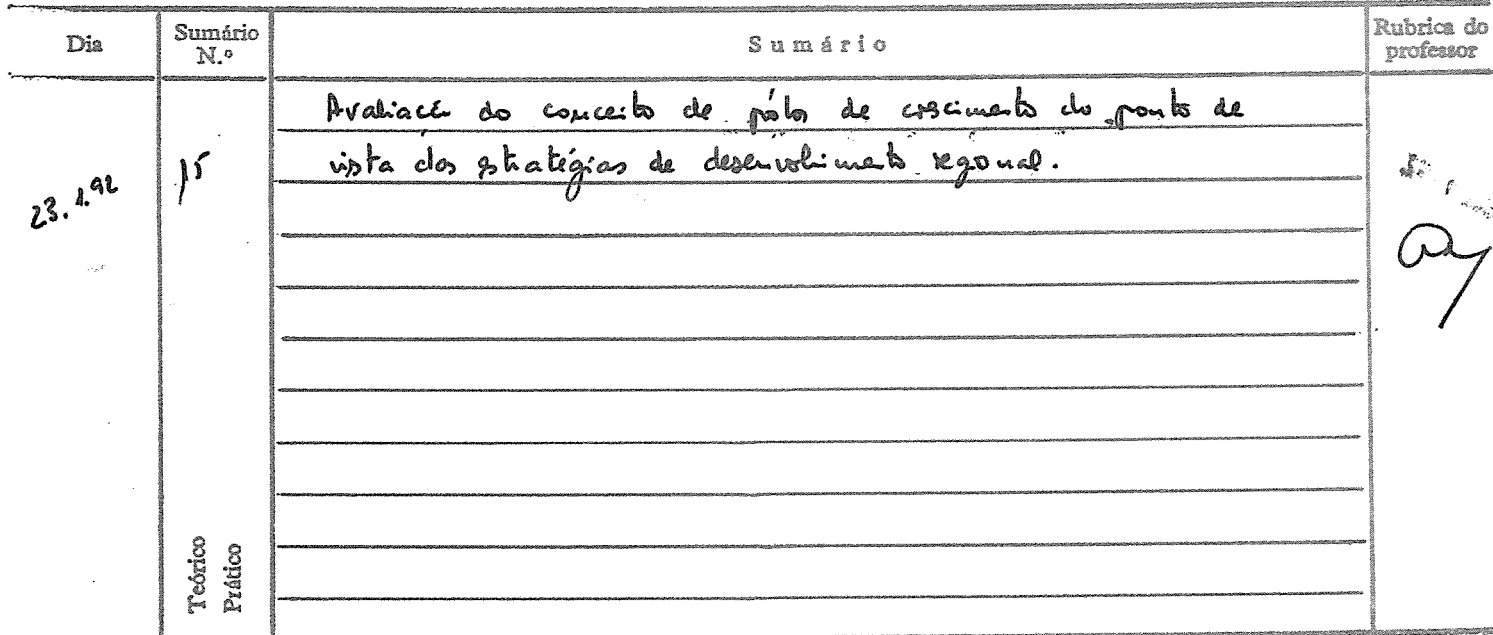 Dia
Sumário
N.º
Sumário
Rubrica do
professor
23.1.92
15
Avaliação do conceito de pólos de crescimento do ponto de
vista das estratégias de desenvolvimento regional.
Teórico
Prático